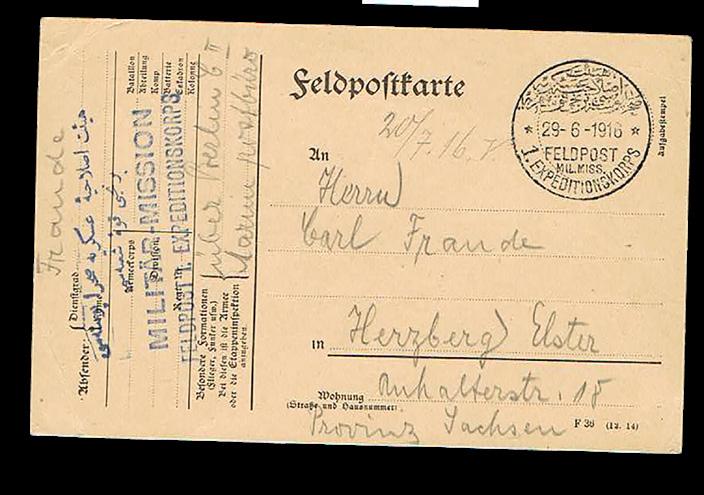 Feldpostkarte
20/7.16.
An
Herrn
Carl Frande
in Herzberg Elster
Wohnung
(Straße und Hausnummer)
Anhalterstr. 18
Provinz Sachsen
F 36 (12. 14)
29-6-1916
FELDPOST
MIL.MISS.
1. EXPEDITIONSKORPS
Aufgabestempel
Absender:
Dienstgrad
Frande
هيئت اصلاحية عسكريه
Armeekorps
Division
Regt Nr.
Bataillon
Abteilung
Komp
Batterie
Eskadron
Kolonne
MILITÄR-MISSION
FELDPOST 1. EXPEDITIONSKORPS
Besondere Formationen
(Flieger, Funker usw.)
Bei diesen ist die Armee
oder die Etappeninspektion
anzugeben.
über Berlin C II
Marine postbüro